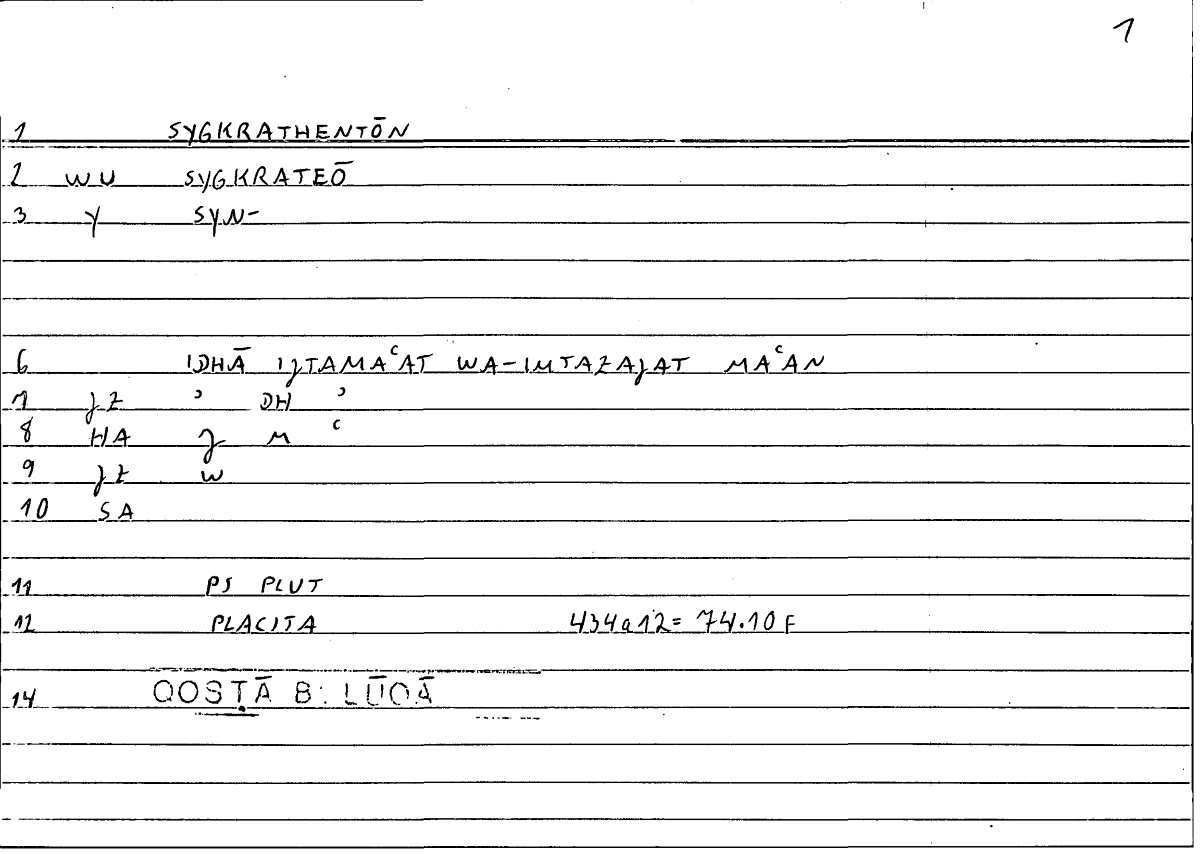 1
1 SYGKRATHENTŌN
2 WU SYGKRATEŌ
3 Y SYN-
6 IDHĀ IJTAMAʿAT WA-IMTAZAJAT MAʿAN
7 JZ ʾ DH ʾ
8 HA J M ʿ
9 JZ W
10 SA
11 PS PLUT
12 PLACITA 434a12= 74.10 F
14 QOSṬĀ B. LŪQĀ